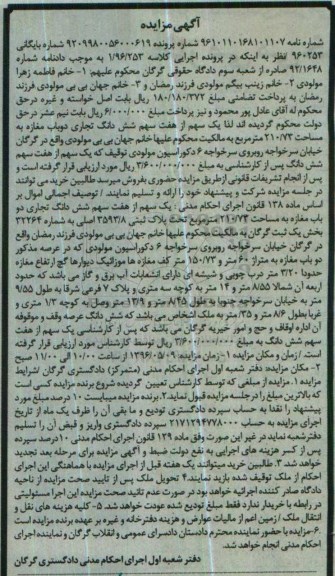 آگهی مزایده
شماره نامه ۹۶۱۰۱۱۰۱۶۸۱۰۱۱۰۷ شماره پرونده ۹۲۰۹۹۸۰۰۵۶۰۰۰۶۱۹ شماره بایگانی
۹۶۰۲۵۳ نظر به اینکه در پرونده اجرایی کلاسه ۱/۹۶/۲۵۳ به موجب دادنامه شماره
۹۲/۱۶۴۸ صادره از شعبه سوم دادگاه حقوقی گرگان محکوم علیهم: ۱- خانم فاطمه زهرا
مولودی ۲- خانم زینب بیگم مولودی فرزند رمضان و ۳- خانم جهان بی بی مولودی فرزند
رمضان به پرداخت تضامنی مبلغ ۱۸۰/۱۸۰/۳۷۲ ریال بابت اصل خواسته و غیره درحق
محکوم له آقای عادل پور محمود و نیز پرداخت مبلغ ۶/۰۰۰/۰۰۰ ریال بابت نیم عشر در حق
دولت محکوم گردیده اند لذا یک سهم از هفت سهم شش دانگ تجاری دوباب مغازه به
مساحت ۲۱۰/۷۳ مترمربع به مالکیت محکوم علیها خانم جهان بی بی مولودی واقع در گرگان
خیابان سرخواجه روبروی سرخواجه ۶ دکوراسیون مولودی توقیف که یک سهم از هفت سهم
شش دانگ پس از کارشناسی به مبلغ ۳/۶۰۰/۰۰۰/۰۰۰ ریال مورد ارزیابی قرار گرفته است و
پس از انجام تشریفات قانونی ازطریق مزایده حضوری بفروش میرسد طالبین خرید می توانند
در جلسه مزایده شرکت و پیشنهاد خود را ارائه و تسلیم نمایند. / توصیف اجمالی اموال بر
اساس ماده ۱۳۸ قانون اجرای احکام مدنی: یک سهم از هفت سهم شش دانگ تجاری دو
باب مغازه به مساحت ۲۱۰/۷۳ مترمربع تحت پلاک ثبتی ۳۵۹۳/۸ اصلی به شماره ۳۲۲۶۴
بخش یک ثبت گرگان به مالکیت محکوم علیها خانم جهان بی بی مولودی فرزند رمضان واقع
در گرگان خیابان سرخواجه روبروی سرخواجه ۶ دکوراسیون مولودی که در عرصه مذکور
دو باب مغازه به متراژ ۶۰ متر و ۱۵۰/۷۳ متر کف مغازه ها موزائیک دیوارها گچ ارتفاع مغازه
حدودا ۳/۲۰ متر درب چوبی و شیشه ای دارای انشعابات آب برق و گاز می باشد که حدود
اربعه آن شمالا ۸/۵۵ متر و ۱۴ متر به کوچه سه متری و پلاک ۷ فرعی شرقا به طول ۹/۵۵
متر به خیابان سرخواجه جنوبا به طول ۸/۴۵ متر و ۱۳/۹ متر وصل به کوچه ۱/۳ متری و
غربا بطول ۸/۶ متر و ۳۵/ متر به ملک اشخاص می باشد که شش دانگ عرصه وقف و موقوفه
آن اداره اوقاف و حج و امور خیریه گرگان می باشد که پس از کارشناسی یک سهم از هفت
سهم شش دانگ به مبلغ ۳/۶۰۰/۰۰۰/۰۰۰ ریال توسط کارشناس مورد ارزیابی قرار گرفته
است. / زمان و مکان مزایده: ۱- زمان مزایده: ۱۳۹۶/۰۵/۰۹ از ساعت ۱۰/۰۰ الی ۱۱/۰۰ صبح
۲- مکان مزایده: دفتر شعبه اول اجرای احکام مدنی (متمرکز) دادگستری گرگان /شرایط
مزایده ۱. مزایده از مبلغی که توسط کارشناس تعیین گردیده شروع برنده مزایده کسی است
که بالاترین مبلغ را در جلسه مزایده قبول نماید. ۲. برنده مزایده میبایست ۱۰ درصد مبلغ مورد
پیشنهاد را نقدا به حساب سپرده دادگستری تودیع و ما بقی آن را ظرف یک ماه از تاریخ
اجرای مزایده به حساب ۲۱۷۱۲۹۴۷۷۸۰۰۰ سپرده دادگستری واریز و قبض آن را تسلیم
دفترشعبه نماید در غیر این صورت وفق ماده ۱۲۹ قانون اجرای احکام مدنی ۱۰درصد سپرده
پس از کسر هزینه های اجرایی به نفع دولت ضبط و آگهی مزایده برای مرحله بعد تجدید
خواهد شد. ۳. طالبین خرید میتوانند یک هفته قبل از اجرای مزایده با هماهنگی این اجرای
احکام از ملک توقیف شده بازید نمایند. ۴ تحویل ملک پس از تایید صحت مزایده از ناحیه
دادگاه صادر کننده اجرائیه خواهد بود در صورت عدم تائید صحت مزایده این اجرا مسئولیتی
در رابطه با خریدار ندارد فقط مبلغ تودیع شده عودت خواهد شد. ۵- کلیه هزینه های نقل و
انتقال ملک / زمین اعم از مالیات عوارض و هزینه دفترخانه و غیره بر عهده برنده مزایده است
۶- مزایده با حضور نماینده محترم دادستان دادسرای عمومی و انقلاب گرگان و نماینده اجرای
احکام مدنی انجام خواهد شد.
دفتر شعبه اول اجرای احکام مدنی دادگستری گرگان